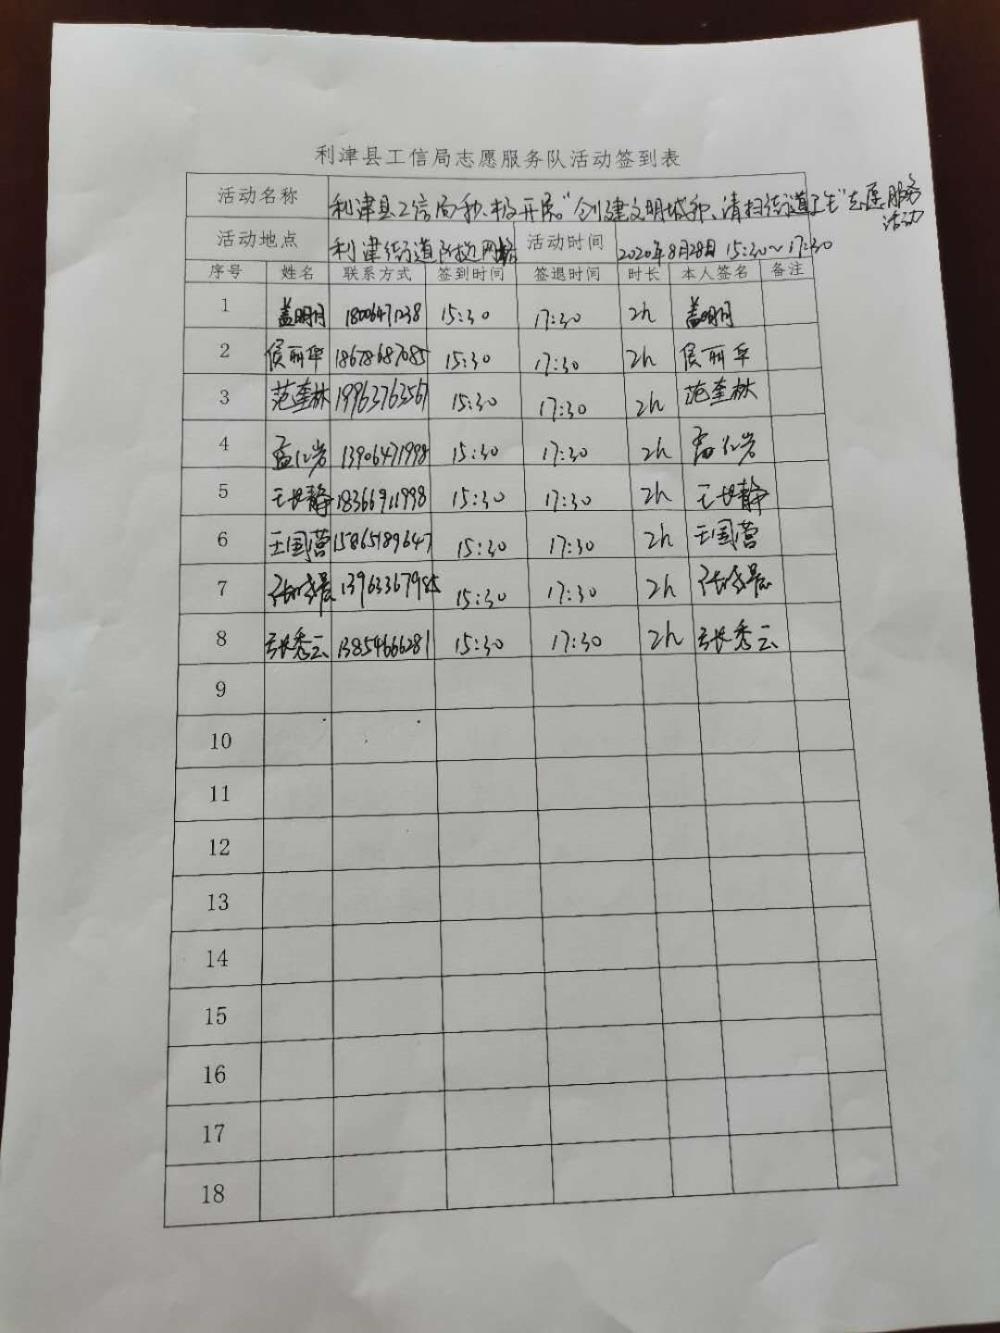 利津县工信局志愿服务队活动签到表
活动名称 利津县工信局积极开展“创建文明城市、清扫街道卫生”志愿服务
活动
活动地点 利津街道附近网格 活动时间 2020年8月28日 15:30～17:30
序号 姓名 联系方式 签到时间 签退时间 时长 本人签名 备注
1 盖明月 18006471238 15:30 17:30 2h 盖明月
2 侯丽华 18678687085 15:30 17:30 2h 侯丽华
3 范奎林 19963763567 15:30 17:30 2h 范奎林
4 13906471998 15:30 17:30 2h
5 王长静 18366911998 15:30 17:30 2h 王长静
6 王国营 15865189647 15:30 17:30 2h 王国营
7 13963367985 15:30 17:30 2h
8 张秀云 13854666281 15:30 17:30 2h 张秀云
9
10
11
12
13
14
15
16
17
18